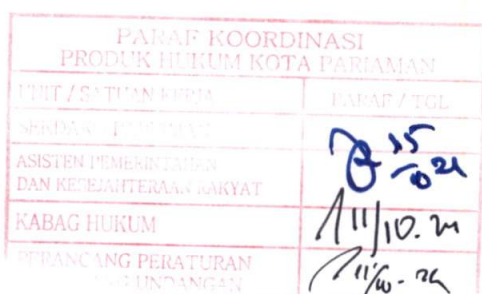 PARAF KOORDINASI
PRODUK HUKUM KOTA PARIAMAN
UNIT / SATUAN KERJA PARAF / TGL
ASISTEN PEMERINTAHAN
DAN KESEJAHTERAAN RAKYAT
KABAG HUKUM 11/10.24
PERANCANG PERATURAN 11/10-24